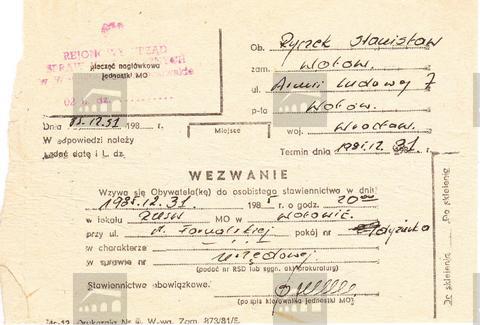 REJONOWY URZĄD
SPRAW WEWNĘTRZNYCH
pieczęć nagłówkowa
jednostki MO
Ob. Ryszek Stanisław
zam. Wołów.
ul. Armii Ludowej 7
p-ta Wołów.
woj. Wrocław.
Dnia 81.12.31 198 r.
Miejsce
W odpowiedzi należy
podać datę i L. dz.
Termin dnia 1981.12.31
WEZWANIE
Wzywa się Obywatela(kę) do osobistego stawiennictwa w dniu
1981.12.31. 198 r. o godz. 20.00
w lokalu RUSW MO w Wołowie.
przy ul. pokój nr Dyżurka
w charakterze
w sprawie nr urzędowej
(podać nr RSD lub sygn. akt prokuratury)
Stawiennictwo obowiązkowe.
(podpis kierownika jednostki MO)
Do sklejenia
Do sklejenia
Mr-12 Drukarnia Nr W-wa. Zam. 873/81/E.